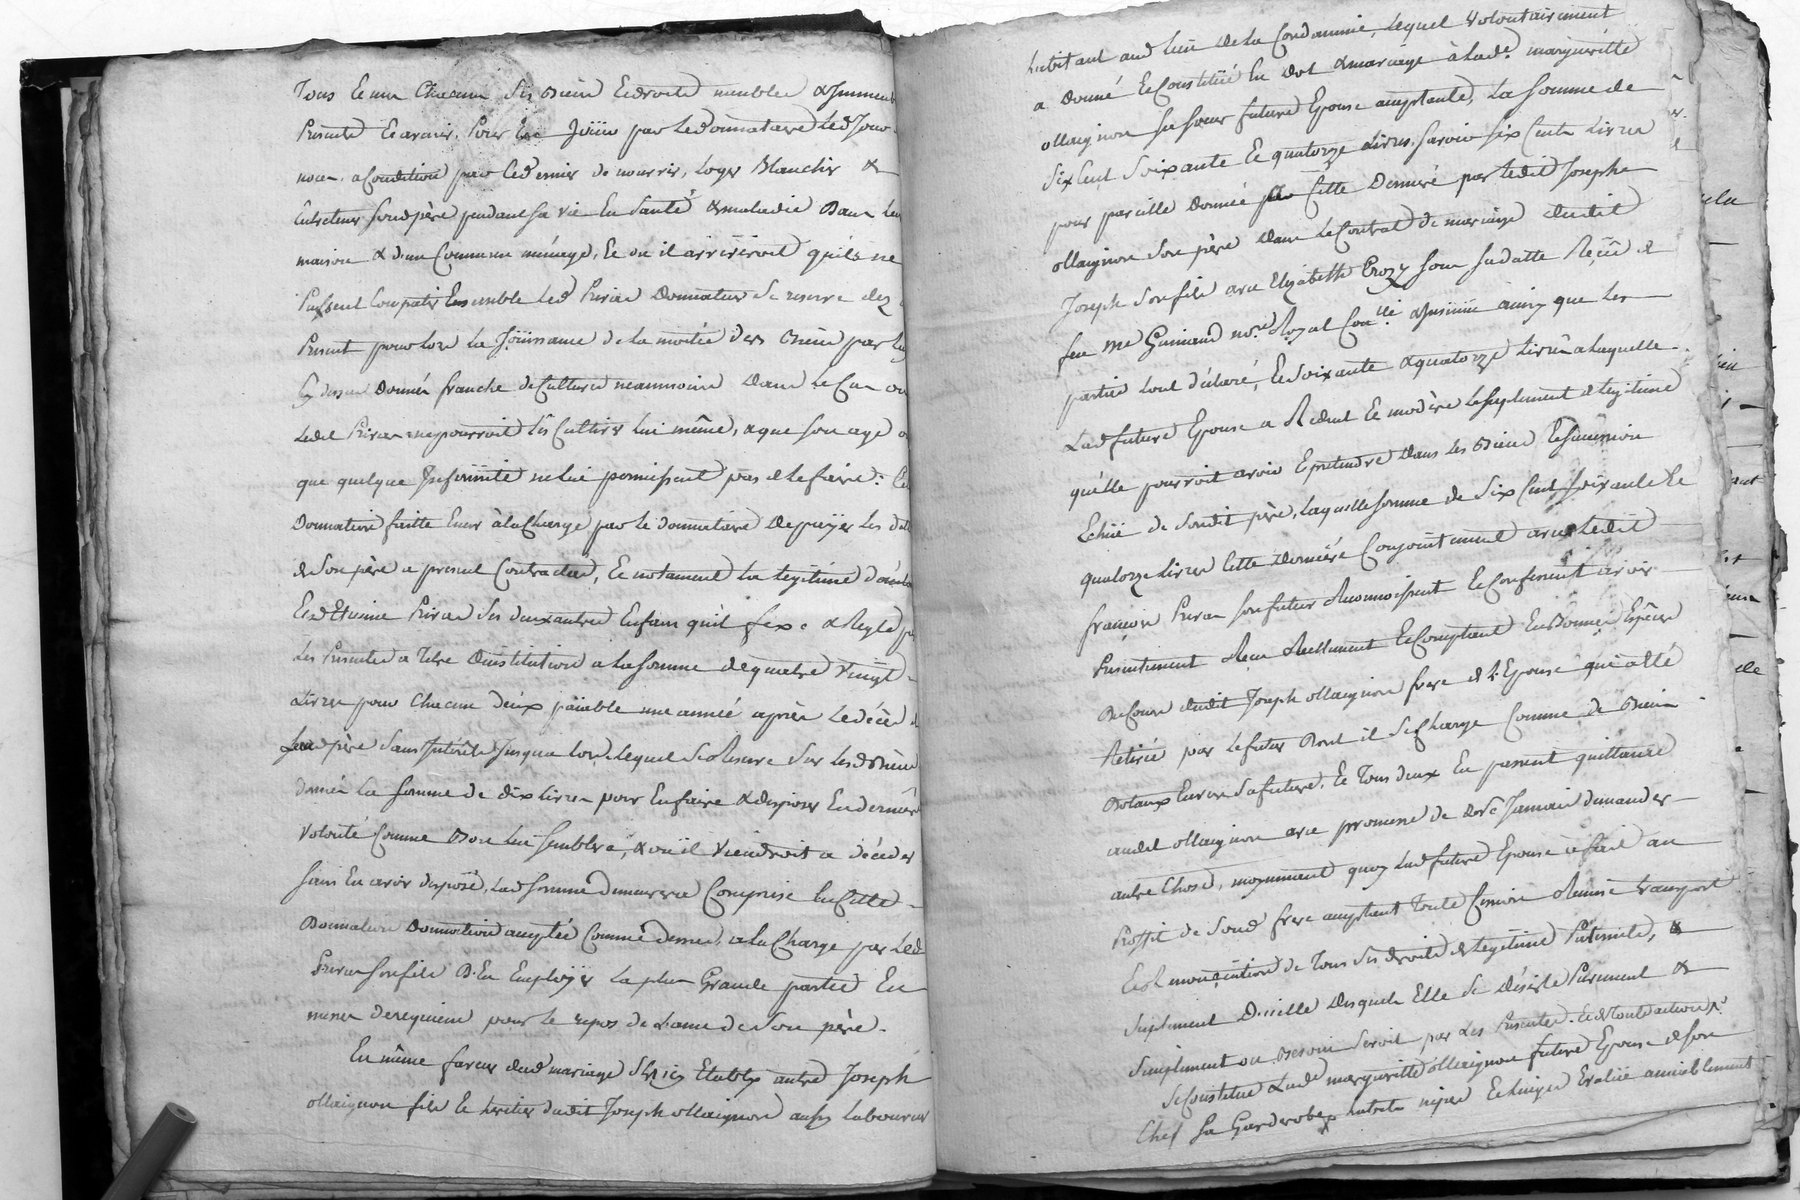 Tous Et un Chacun Ses Biens Et droits meubles & Immeub
Presents Et avenir, Pour En Joüir par Led donnataire Led Jour
nou- a Condition par Led dernier de nourrir, Loger Blanchir &
Entretenir Sond père pendant Sa vie En Santé & maladie Dans Leu
maison & d'un Commun ménage, Et ou il arriveroit qu'ils ne
Pussent Compatir Ensemble Led Privas Donnateur Se reserve dez a
Present pour lors La Joüissance de la moitié des Biens par Luy
Cy dessus Donnés franche de Culture neanmoins Dans Le Cas ou
Ledit Privas ne pourroit Les Cultiver Lui même, & que Son age o
que quelque Infirmité ne Lui permissent pas de Le faire: La
Donnation faitte Encor à la Charge par le donnataire De payer Les dett
de Son père a present Contractées, Et notament La Legitime d'
Et d'Etienne Privas Ses deux autres Enfans qu'il fixe & Regle p
Les Presentes a Titre D'institution a La Somme de quatre Vingt
Livres pour Chacun d'eux païable une année après Le décès d
Leur père Sans Intérêts Jusqu'a lors. Lequel Se Reserve Sur Lesd Biens
donnés La Somme de dix Livres pour En faire & disposer En dernière
Volonté Comme Bon Lui Semblera, & ou il viendroit a décéder
Sans En avoir disposé, Lad Somme demeurera Comprise En Cette
Donnation Donnation acceptée Comme dessus, a la Charge par Led
Privas Son fils D'En Employer La plus Grande partie En
messes de requiem pour le repos de L'ame de Son père.
En même faveur dud mariage S'est icy Etably autre Joseph
ollaignon fils Et heritier dudit Joseph ollaignon aussy Laboureur
habitant aud Lieu De La Condamine, Lequel Volontairement
a Donné Et Constitüé En Dot & mariage à Lade. margueritte
ollaignon Sa Sœur future Epouse acceptante, La Somme de
Six Cent Soixante Et quatorze Livres. Savoir Six Cent Livres
pour pareille Donnée à Cette Derniere par Ledit Joseph
ollaignon Son père Dans Le Contrat de mariage dudit
Joseph Son fils avec Elizabeth Crozy Sous Sa datte Reçü de
feu Me Guiniaud nore. Royal Conlé. & Insinué ainsy que Les
parties L'ont déclaré, Et Soixante & quatorze Livres a Laquelle
Lad future Epouse a Reduit Et modéré Le Suplement de Legitime
qu'elle pourroit avoir Et pretendre dans Les Biens & Succession
Echüe de Sondit père, Laquelle Somme de Six Cent Soixante Et
quatorze Livres Cette Derniére Conjointement avec Ledit
françois Privas Son futur Reconnoissent Et Confessent avoir
Presentement Reçu Reellement Et Comptant En Bonnes Espêces
Du Cours dudit Joseph ollaignon frere de L'Epouse qui a Eté
Retirée par Le futur Dont il Se Charge Comme de Biens
Dotaux Envers Sa future, Et Tous deux En passent quittance
audit ollaignon avec promesse de Ne Jamais demander
autre Chose, moyennant quoy Lad future Epouse a fait au
Proffit de Sond frere acceptant Toute Cession Remise transport
Et Renonciation de Tous Ses droits de Legitime Paternels, &
Suplement D'icelle Desquels Elle Se Désiste Purement &
Simplement ou Besoin Seroit par Les Presentes. Et de Toute action &c.
Se Constitue Lade marguerite ollaignon future Epouse de Son
Chef Sa Garderobe habits nipes Et Linges Evalüé amiablement